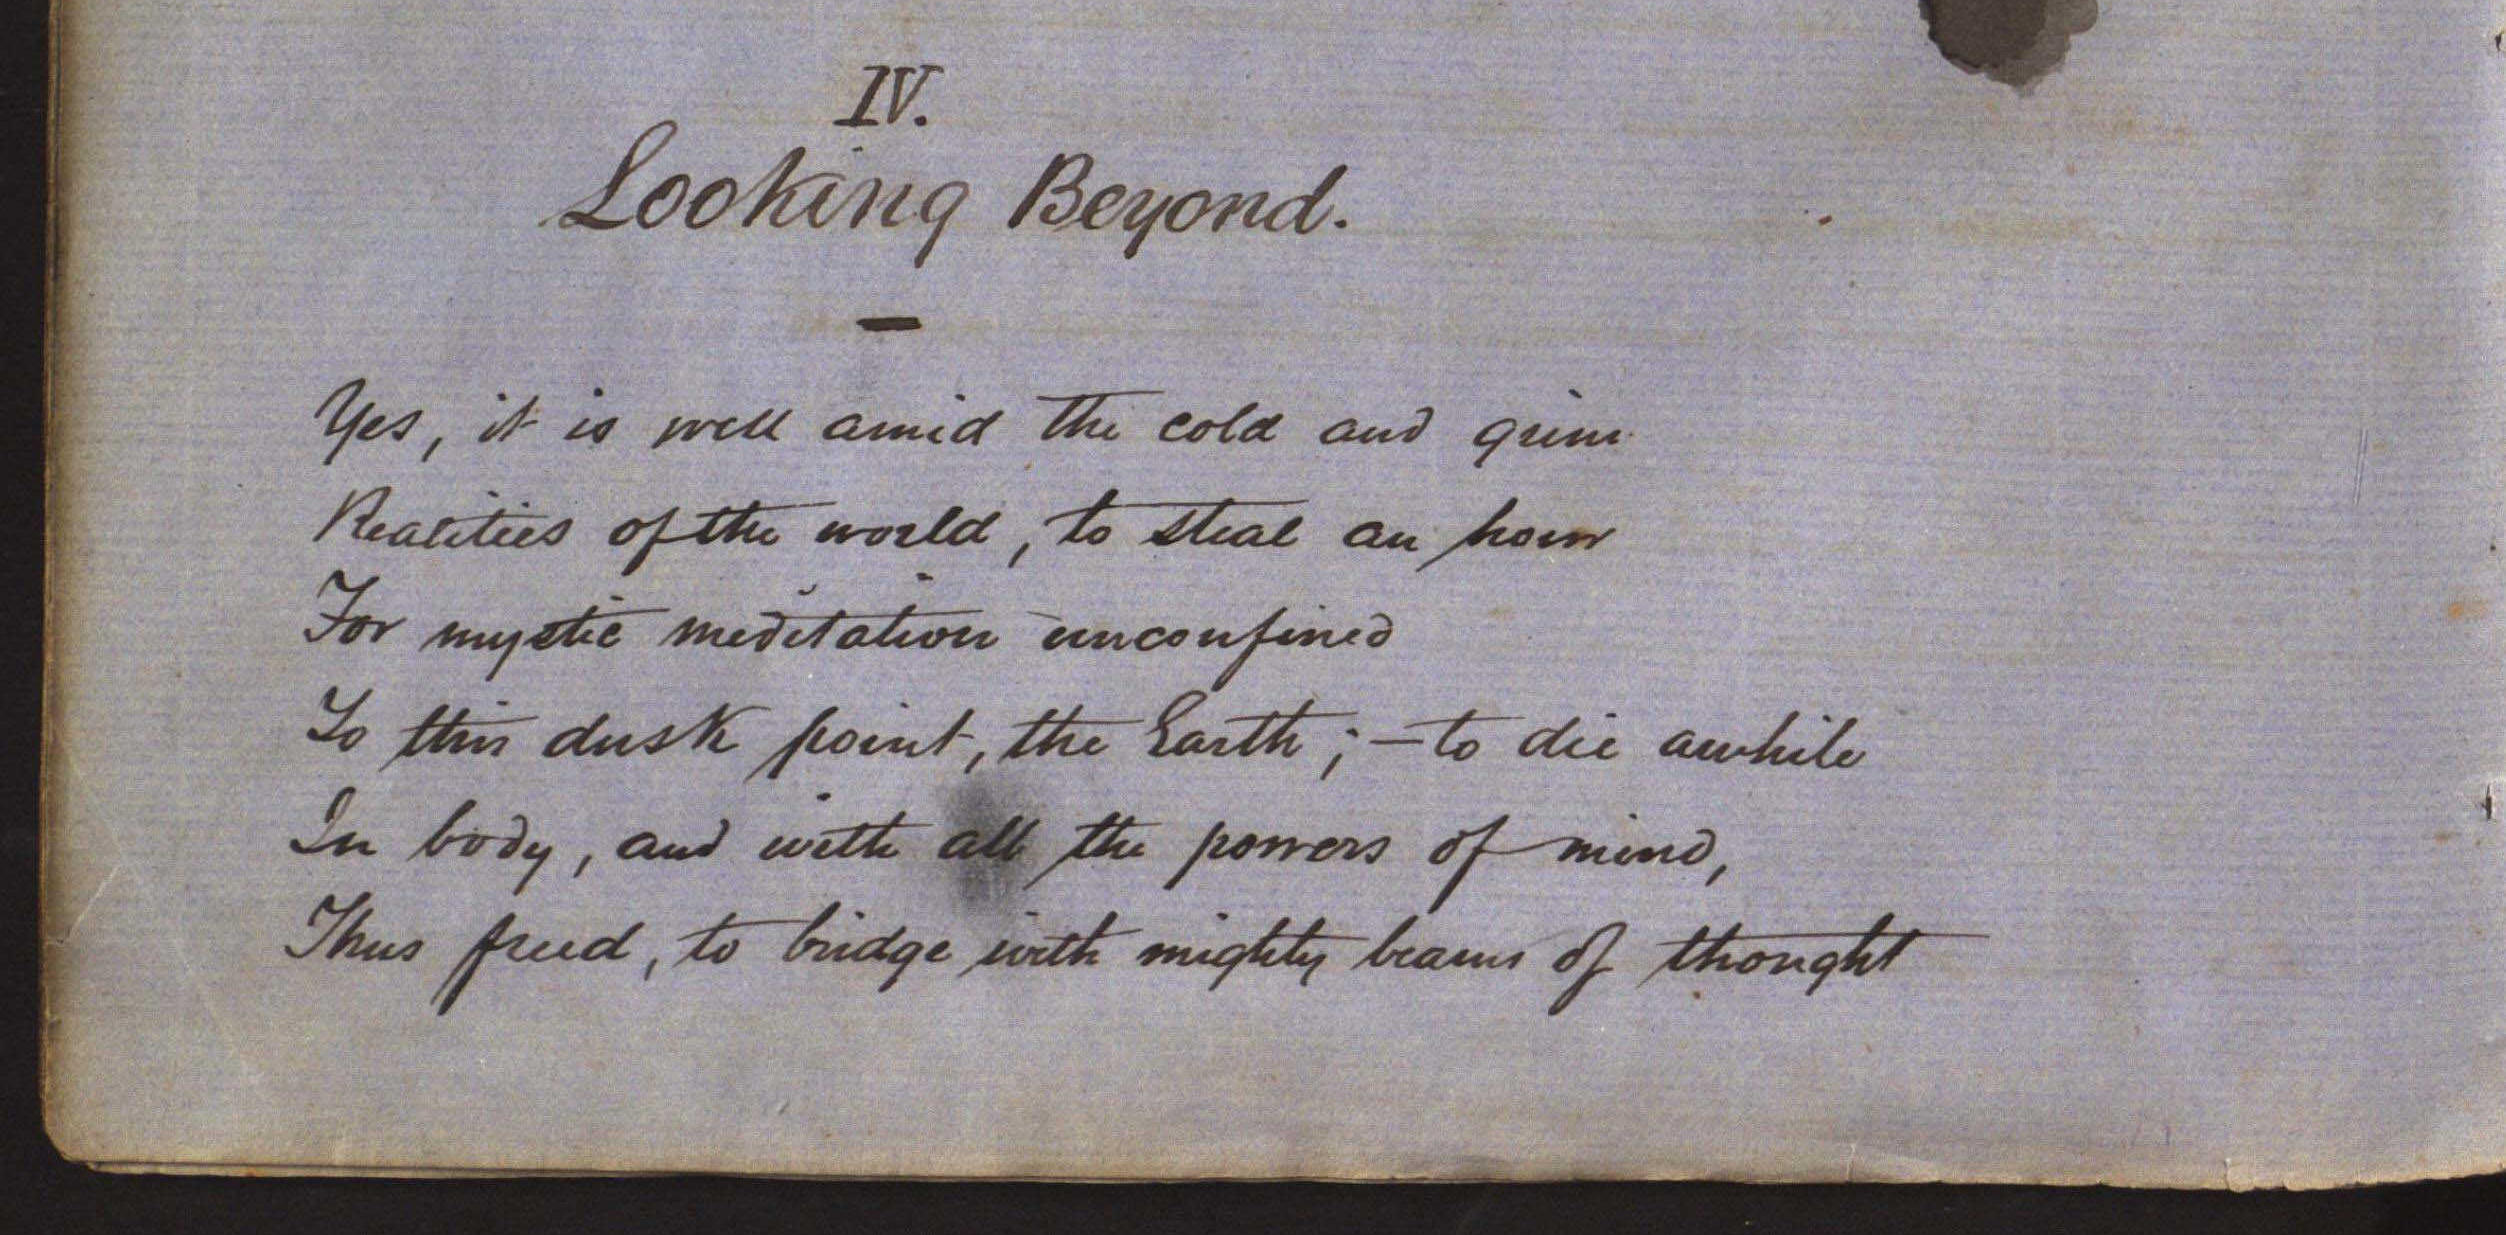 IV.
Looking Beyond.
—
Yes, it is well amid the cold and grim
Realities of the world, to steal an hour
For mystic meditation unconfined
To this dusk point, the Earth; — to die awhile
In body, and with all the powers of mind,
Thus freed, to bridge with mighty beams of thought